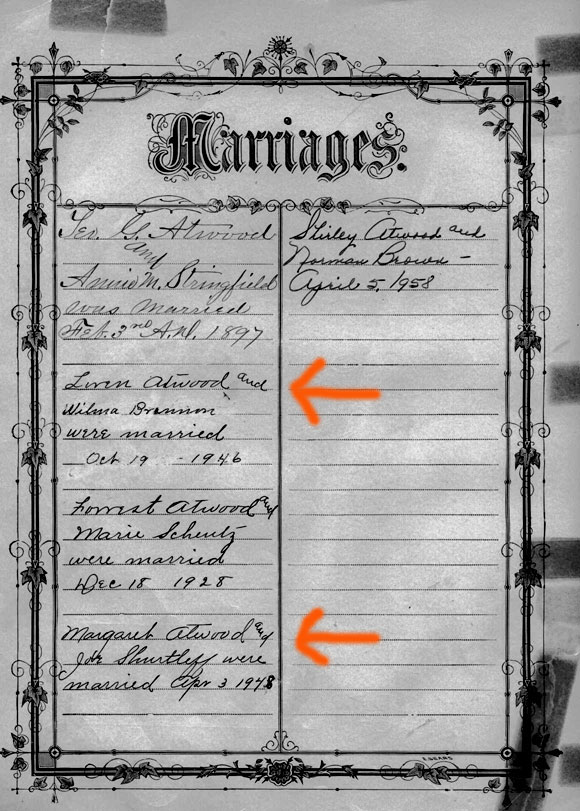 Marriages.
Geo. G. Atwood
and
Annie M. Stringfield
was married
Feb. 3rd A.D. 1897
Loren Atwood and
Wilma Brannon
were married
Oct 19 - 1946
Forrest Atwood and
Marie Scheutz
were married
Dec 18 1928
Margaret Atwood and
Joe Shurtleff were
married Apr 3 1948
Shirley Atwood and
Norman Brown -
April 5, 1958